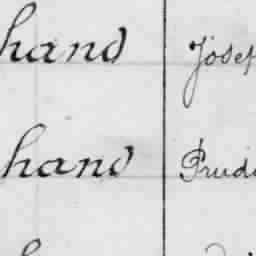 hand Josef
hand Prud